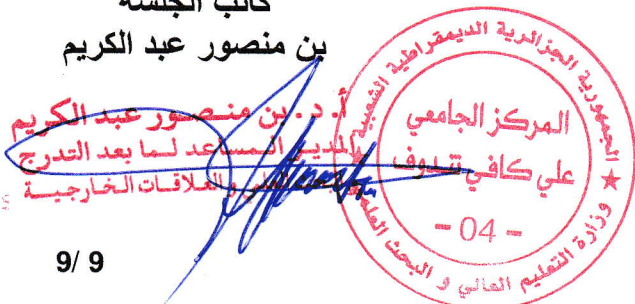 كاتب الجلسة
بن منصور عبد الكريم
أ. د. بن منصور عبد الكريم
المدير المساعد لما بعد التدرج
والعلاقات الخارجية
9/ 9
الجمهورية الجزائرية الديمقراطية الشعبية
المركز الجامعي
علي كافي تندوف
- 04 -
وزارة التعليم العالي و البحث العلمي